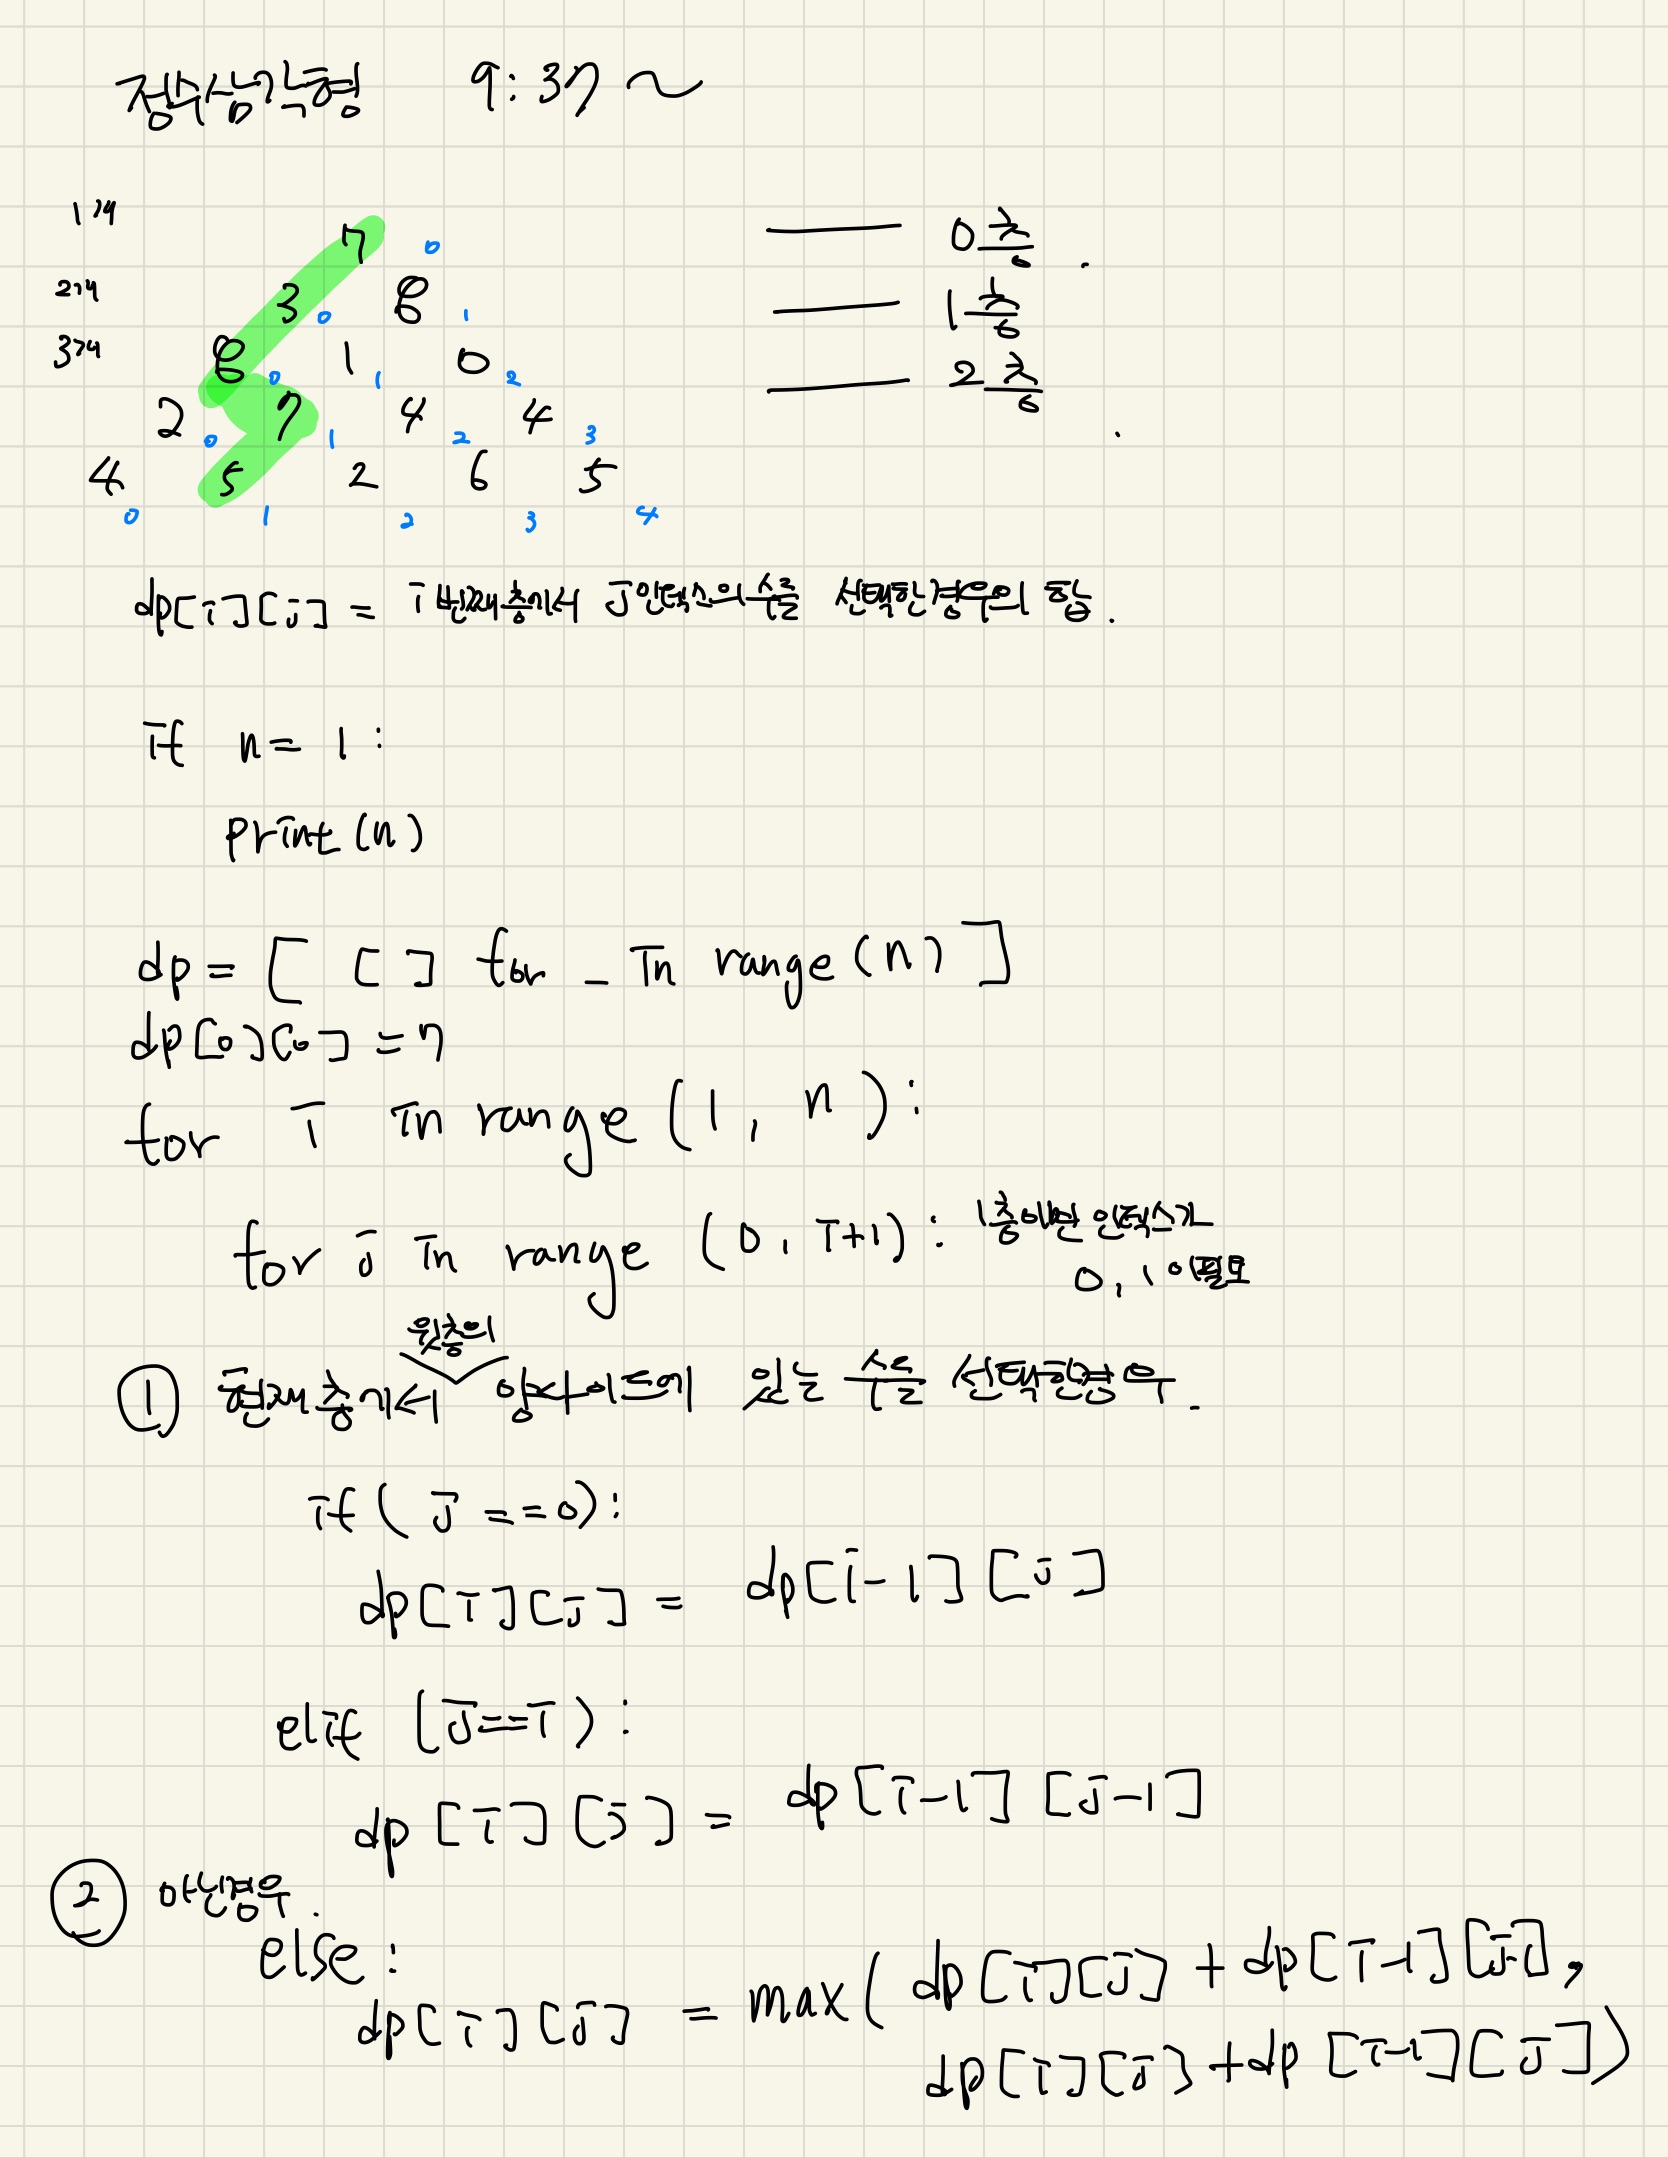 정수삼각형 9:37 ~
1개 7 0 0층.
2개 3 0 8 1 1층
3개 8 0 1 1 0 2 2층
2 0 7 1 4 2 4 3
4 0 5 1 2 2 6 3 5 4
dp[i][j] = i번째층에서 j인덱스의 수를 선택한경우의 합.
if n= 1 :
print(n)
dp = [ [] for _ in range(n) ]
dp[0][0] = 7
for i in range (1, n):
for j in range (0, i+1): 1층에만 인덱스가
0, 1 이필요
윗층의
① 현재층에서 양사이드에 있는 수를 선택한경우.
if( j ==0):
dp[i][j] = dp[i-1][j]
elif (j==i):
dp[i][j] = dp[i-1][j-1]
② 아닌경우.
else:
dp[i][j] = max( dp[i][j] + dp[i-1][j-1],
dp[i][j] +dp [i-1][j])